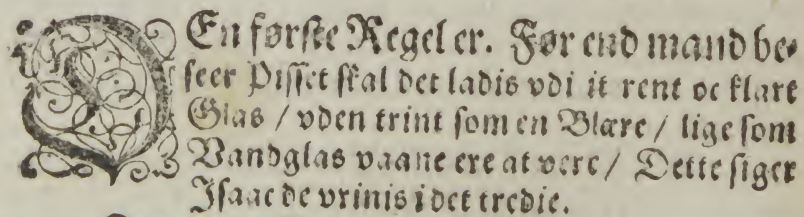 DEn første Regel er. Før end mand be-
seer Pisset skal det ladis vdi it rent oc klart
Glas / vden trint som en Blære / lige som
Vandglas vaane ere at vere / Dette siger
Isaac de vrinis i det tredie.